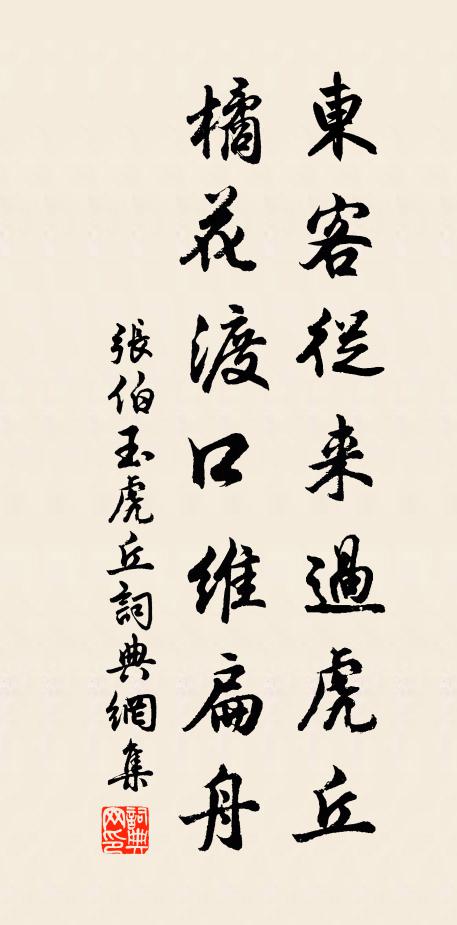 東客從来過虎丘
橘花渡口維扁舟
張伯玉虎丘詞典網集
詞典网印